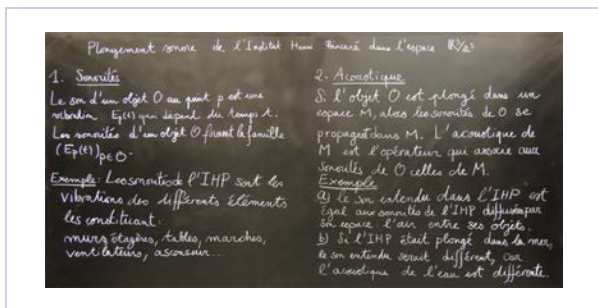 Plongement sonore de l'Institut Henri Poincaré dans l'espace R³/Z³
1. Sonorités
Le son d'un objet O au point p est une
vibration Ep(t) qui dépend du temps t.
Les sonorités d'un objet O forment la famille
(Ep(t))p∈O.
Exemple: Les sonorités de l'IHP sont les
vibrations des différents éléments
les constituant:
murs, étagères, tables, marches,
ventilateurs, ascenseur...
2. Acoustique
Si l'objet O est plongé dans un
espace M, alors les sonorités de O se
propagent dans M. L'acoustique de
M est l'opérateur qui associe aux
sonorités de O celles de M.
Exemple
a) Le son entendu dans l'IHP est
égal aux sonorités de l'IHP diffusées par
son espace: l'air entre ses objets.
b) Si l'IHP était plongé dans la mer,
le son entendu serait différent, car
l'acoustique de l'eau est différente.